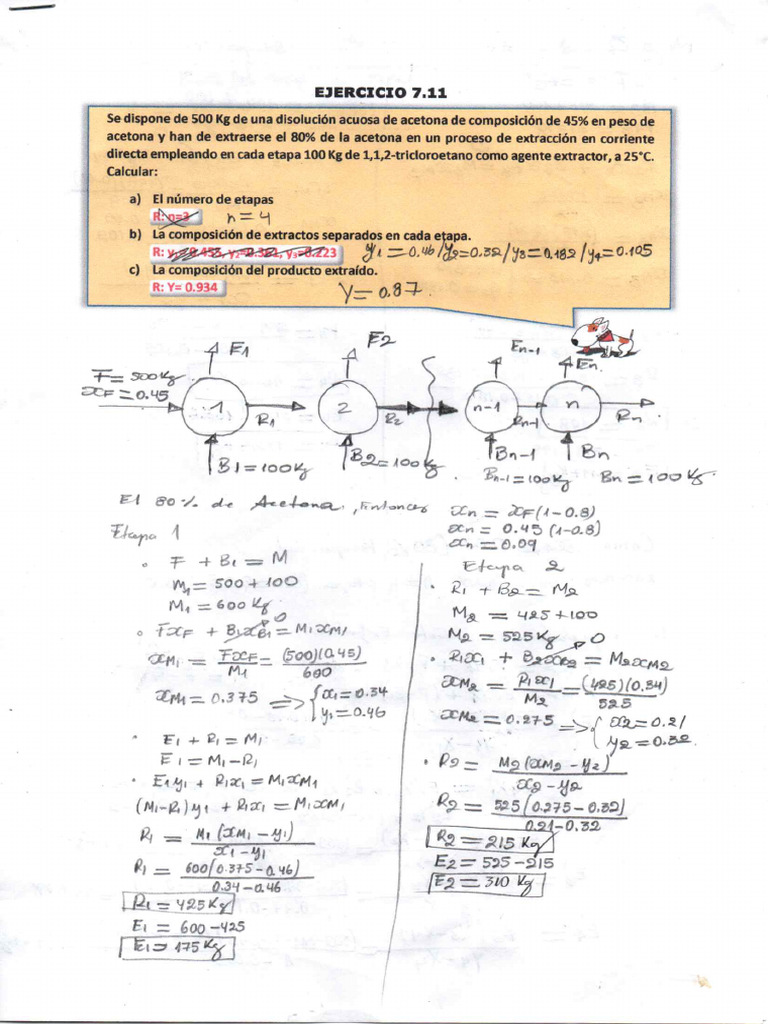 EJERCICIO 7.11
Se dispone de 500 Kg de una disolución acuosa de acetona de composición de 45% en peso de
acetona y han de extraerse el 80% de la acetona en un proceso de extracción en corriente
directa empleando en cada etapa 100 Kg de 1,1,2-tricloroetano como agente extractor, a 25°C.
Calcular:
a) El número de etapas
R: n=3 n = 4
b) La composición de extractos separados en cada etapa.
y1 = 0.46 / y2 = 0.32 / y3 = 0.182 / y4 = 0.105
c) La composición del producto extraído.
R: Y= 0.934 Y = 0.87.
E1 E2 En-1 En
F = 500 Kg
xF = 0.45
1 R1 2 R2 n-1 Rn-1 n Rn
B1 = 100 Kg B2 = 100 Kg Bn-1 Bn
Bn-1 = 100 Kg Bn = 100 Kg
El 80% de Acetona, Entonces xn = xF (1-0.8)
xn = 0.45 (1-0.8)
xn = 0.09
Etapa 1
F + B1 = M
M1 = 500 + 100
M1 = 600 Kg
FxF + B1xB1 = M1xM1
0
xM1 = FxF / M1 = (500)(0.45) / 600
xM1 = 0.375 => { x1 = 0.34
y1 = 0.46
E1 + R1 = M1
E1 = M1 - R1
E1y1 + R1x1 = M1xM1
(M1-R1) y1 + R1x1 = M1xM1
R1 = M1 (xM1 - y1) / x1 - y1
R1 = 600(0.375 - 0.46) / 0.34 - 0.46
R1 = 425 Kg
E1 = 600 - 425
E1 = 175 Kg
Etapa 2
R1 + B2 = M2
M2 = 425 + 100
M2 = 525 Kg
0
R1x1 + B2xB2 = M2xM2
xM2 = R1x1 / M2 = (425)(0.34) / 525
xM2 = 0.275 => { x2 = 0.21
y2 = 0.32
R2 = M2 (xM2 - y2) / x2 - y2
R2 = 525 (0.275 - 0.32) / 0.21 - 0.32
R2 = 215 Kg
E2 = 525 - 215
E2 = 310 Kg